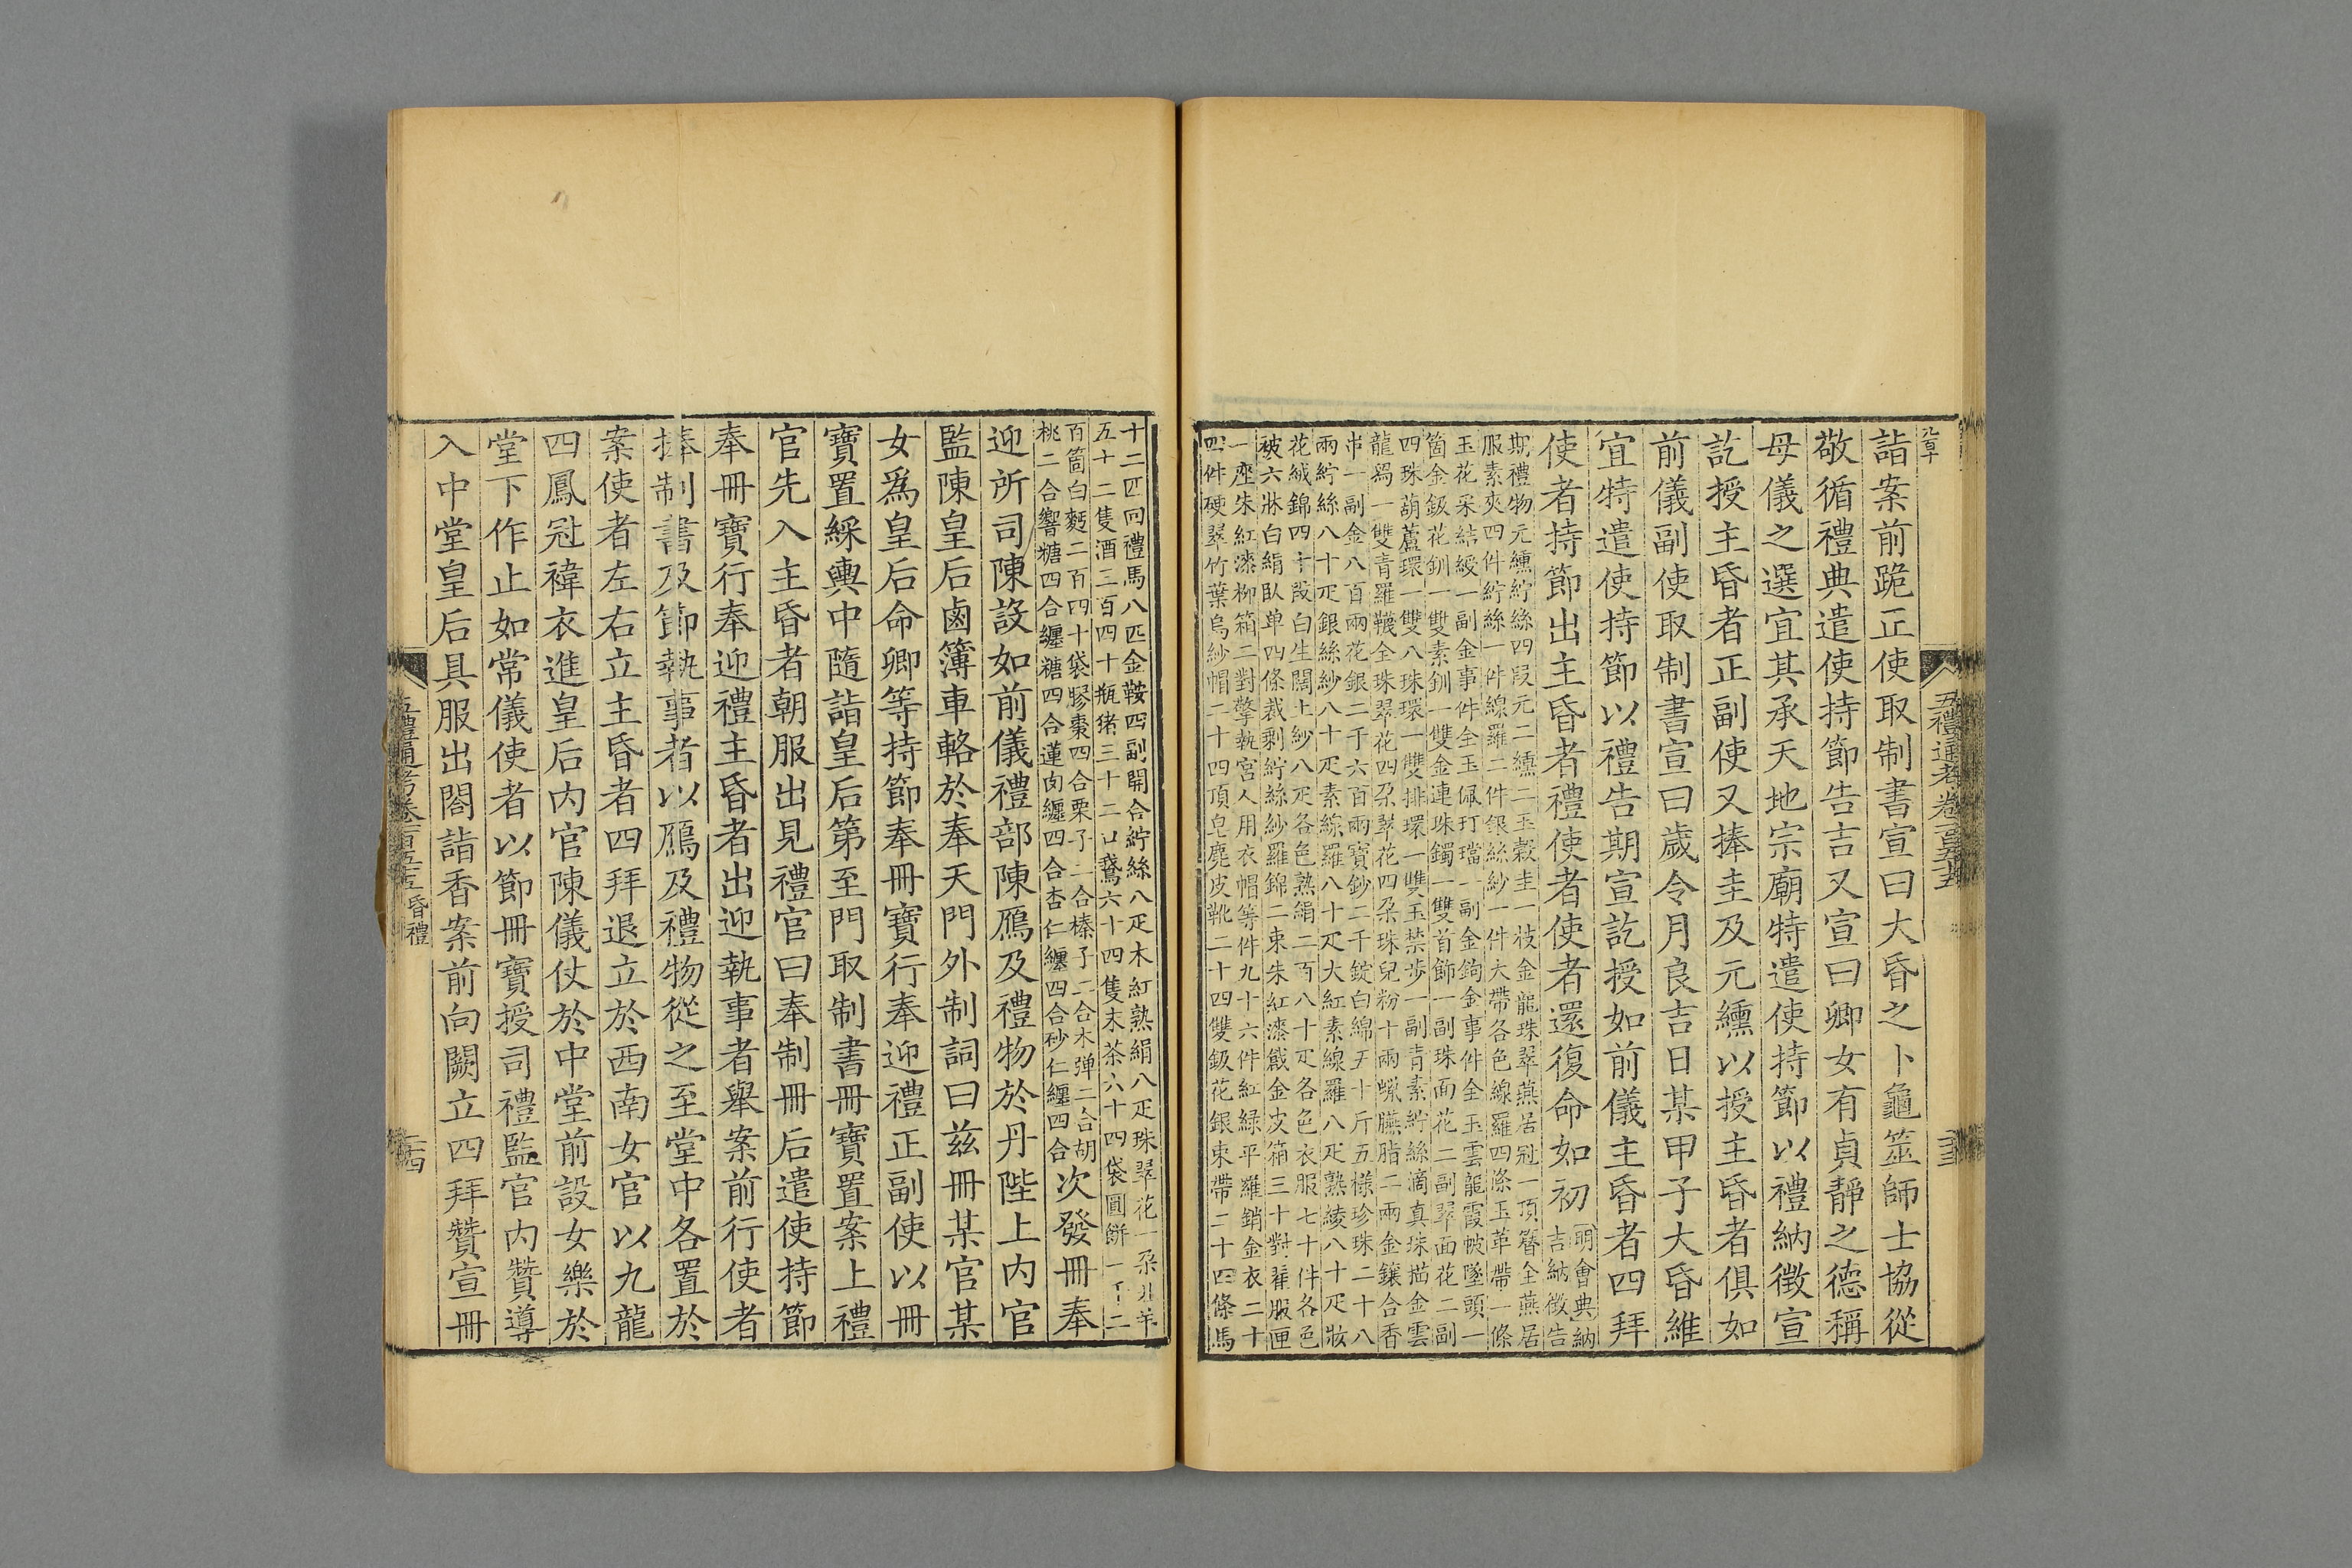 詣案前跪正使取制書宣曰大昏之卜龜筮師士協從
敬循禮典遣使持節告吉又宣曰卿女有貞靜之德稱
母儀之選宜其承天地宗廟特遣使持節以禮納徵宣
訖授主昏者正副使又捧圭及元纁以授主昏者俱如
前儀副使取制書宣曰歲令月良吉日某甲子大昏維
宜特遣使持節以禮告期宣訖授如前儀主昏者四拜
使者持節出主昏者禮使者使者還復命如初
明會典納
吉納徵告
期禮物元纁紵絲四段元二纁二玉穀圭一枝金龍珠翠燕居冠一頂簪全燕居
服素夾四件紵絲一件線羅二件銀絲紗一件大帶各色線羅四條玉革帶一條
玉花采結綬一副金事件全玉佩玎璫一副金鉤金事件全玉雲龍霞帔墜頭一
箇金鈒花釧一雙素釧一雙金連珠鐲一雙首飾一副珠面花二副翠面花二副
四珠葫蘆環一雙八珠環一雙排環一雙玉禁步一副青素紵絲滴真珠描金雲
龍舄一雙青羅韈全珠翠花四朶翠花四朶珠兒粉十兩蠟臙脂二兩金鑲合香
串一副金八百兩花銀二千六百兩寶鈔二千錠白綿五十斤五樣珍珠二十八
兩紵絲八十疋銀絲紗八十疋素線羅八十疋大紅素線羅八疋熟綾八十疋妝
花絨錦四十段白生闊土紗八疋各色熟絹二百八十疋各色衣服七十件各色
被六牀白絹臥单四條裁剩紵絲紗羅錦二束朱紅漆戧金皮箱三十對羅服匣
一座朱紅漆柳箱二對擎執宮人用衣帽等件九十六件紅綠平羅銷金衣二十
四件硬翠竹葉烏紗帽二十四頂皂麂皮靴二十四雙鈒花銀束帶二十四條馬
五禮通考卷一百五十五
三三
十二匹回禮馬八匹金鞍四副開合紵絲八疋木紅熟絹八疋珠翠花一朶北羊
五十二隻酒二百四十瓶猪三十二口鵞六十四隻末茶六十四袋圓餅一千二
百箇白麪二百四十袋膠棗四合栗子二合榛子二合木弹二合胡
桃二合響糖四合纏糖四合蓮肉纏四合杏仁纏四合砂仁纏四合
次發冊奉
迎所司陳設如前儀禮部陳鴈及禮物於丹陛上內官
監陳皇后鹵簿車輅於奉天門外制詞曰茲冊某官某
女爲皇后命卿等持節奉冊寶行奉迎禮正副使以冊
寶置綵輿中隨詣皇后第至門取制書冊寶置案上禮
官先入主昏者朝服出見禮官曰奉制冊后遣使持節
奉冊寶行奉迎禮主昏者出迎執事者舉案前行使者
捧制書及節執事者以鴈及禮物從之至堂中各置於
案使者左右立主昏者四拜退立於西南女官以九龍
四鳳冠褘衣進皇后內官陳儀仗於中堂前設女樂於
堂下作止如常儀使者以節冊寶授司禮監官內贊導
入中堂皇后具服出閤詣香案前向闕立四拜贊宣冊
五禮通考卷一百五十五 昏禮
二四